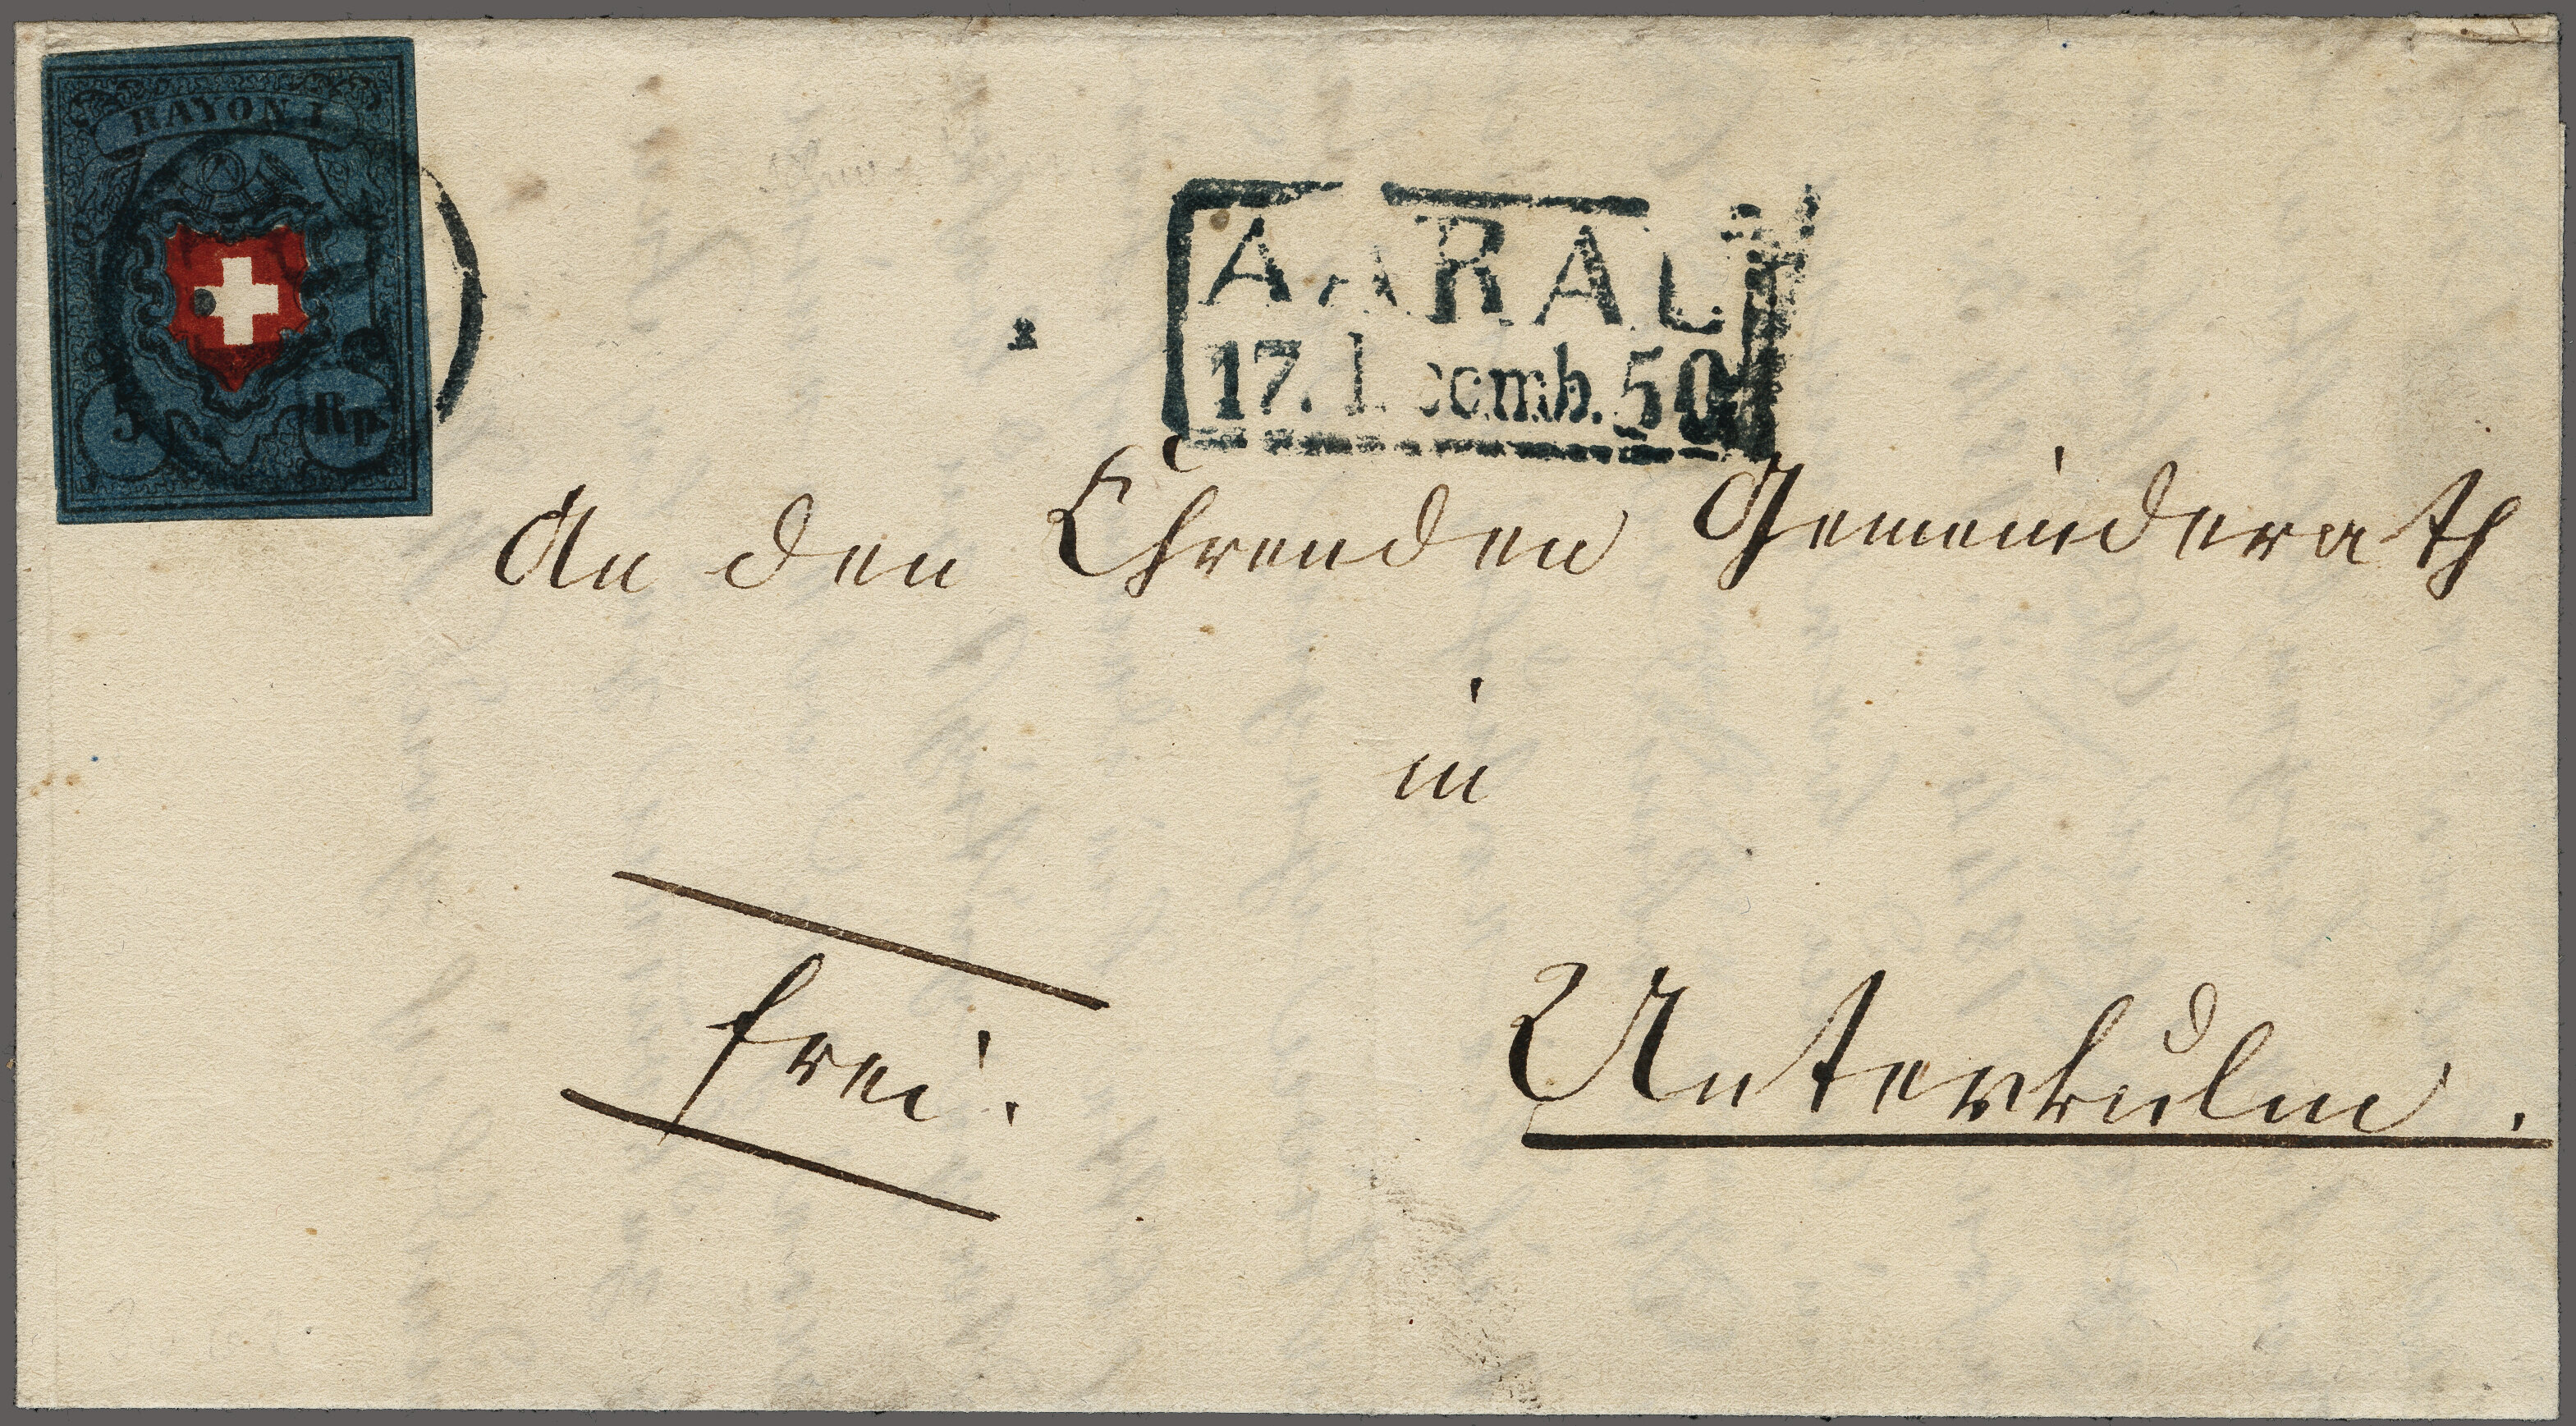 RAYON I.
5 Rp.
AARAU
17. Decemb. 50
An den Ehrenden Gemeinderath
in
frei.
Unterkulm.